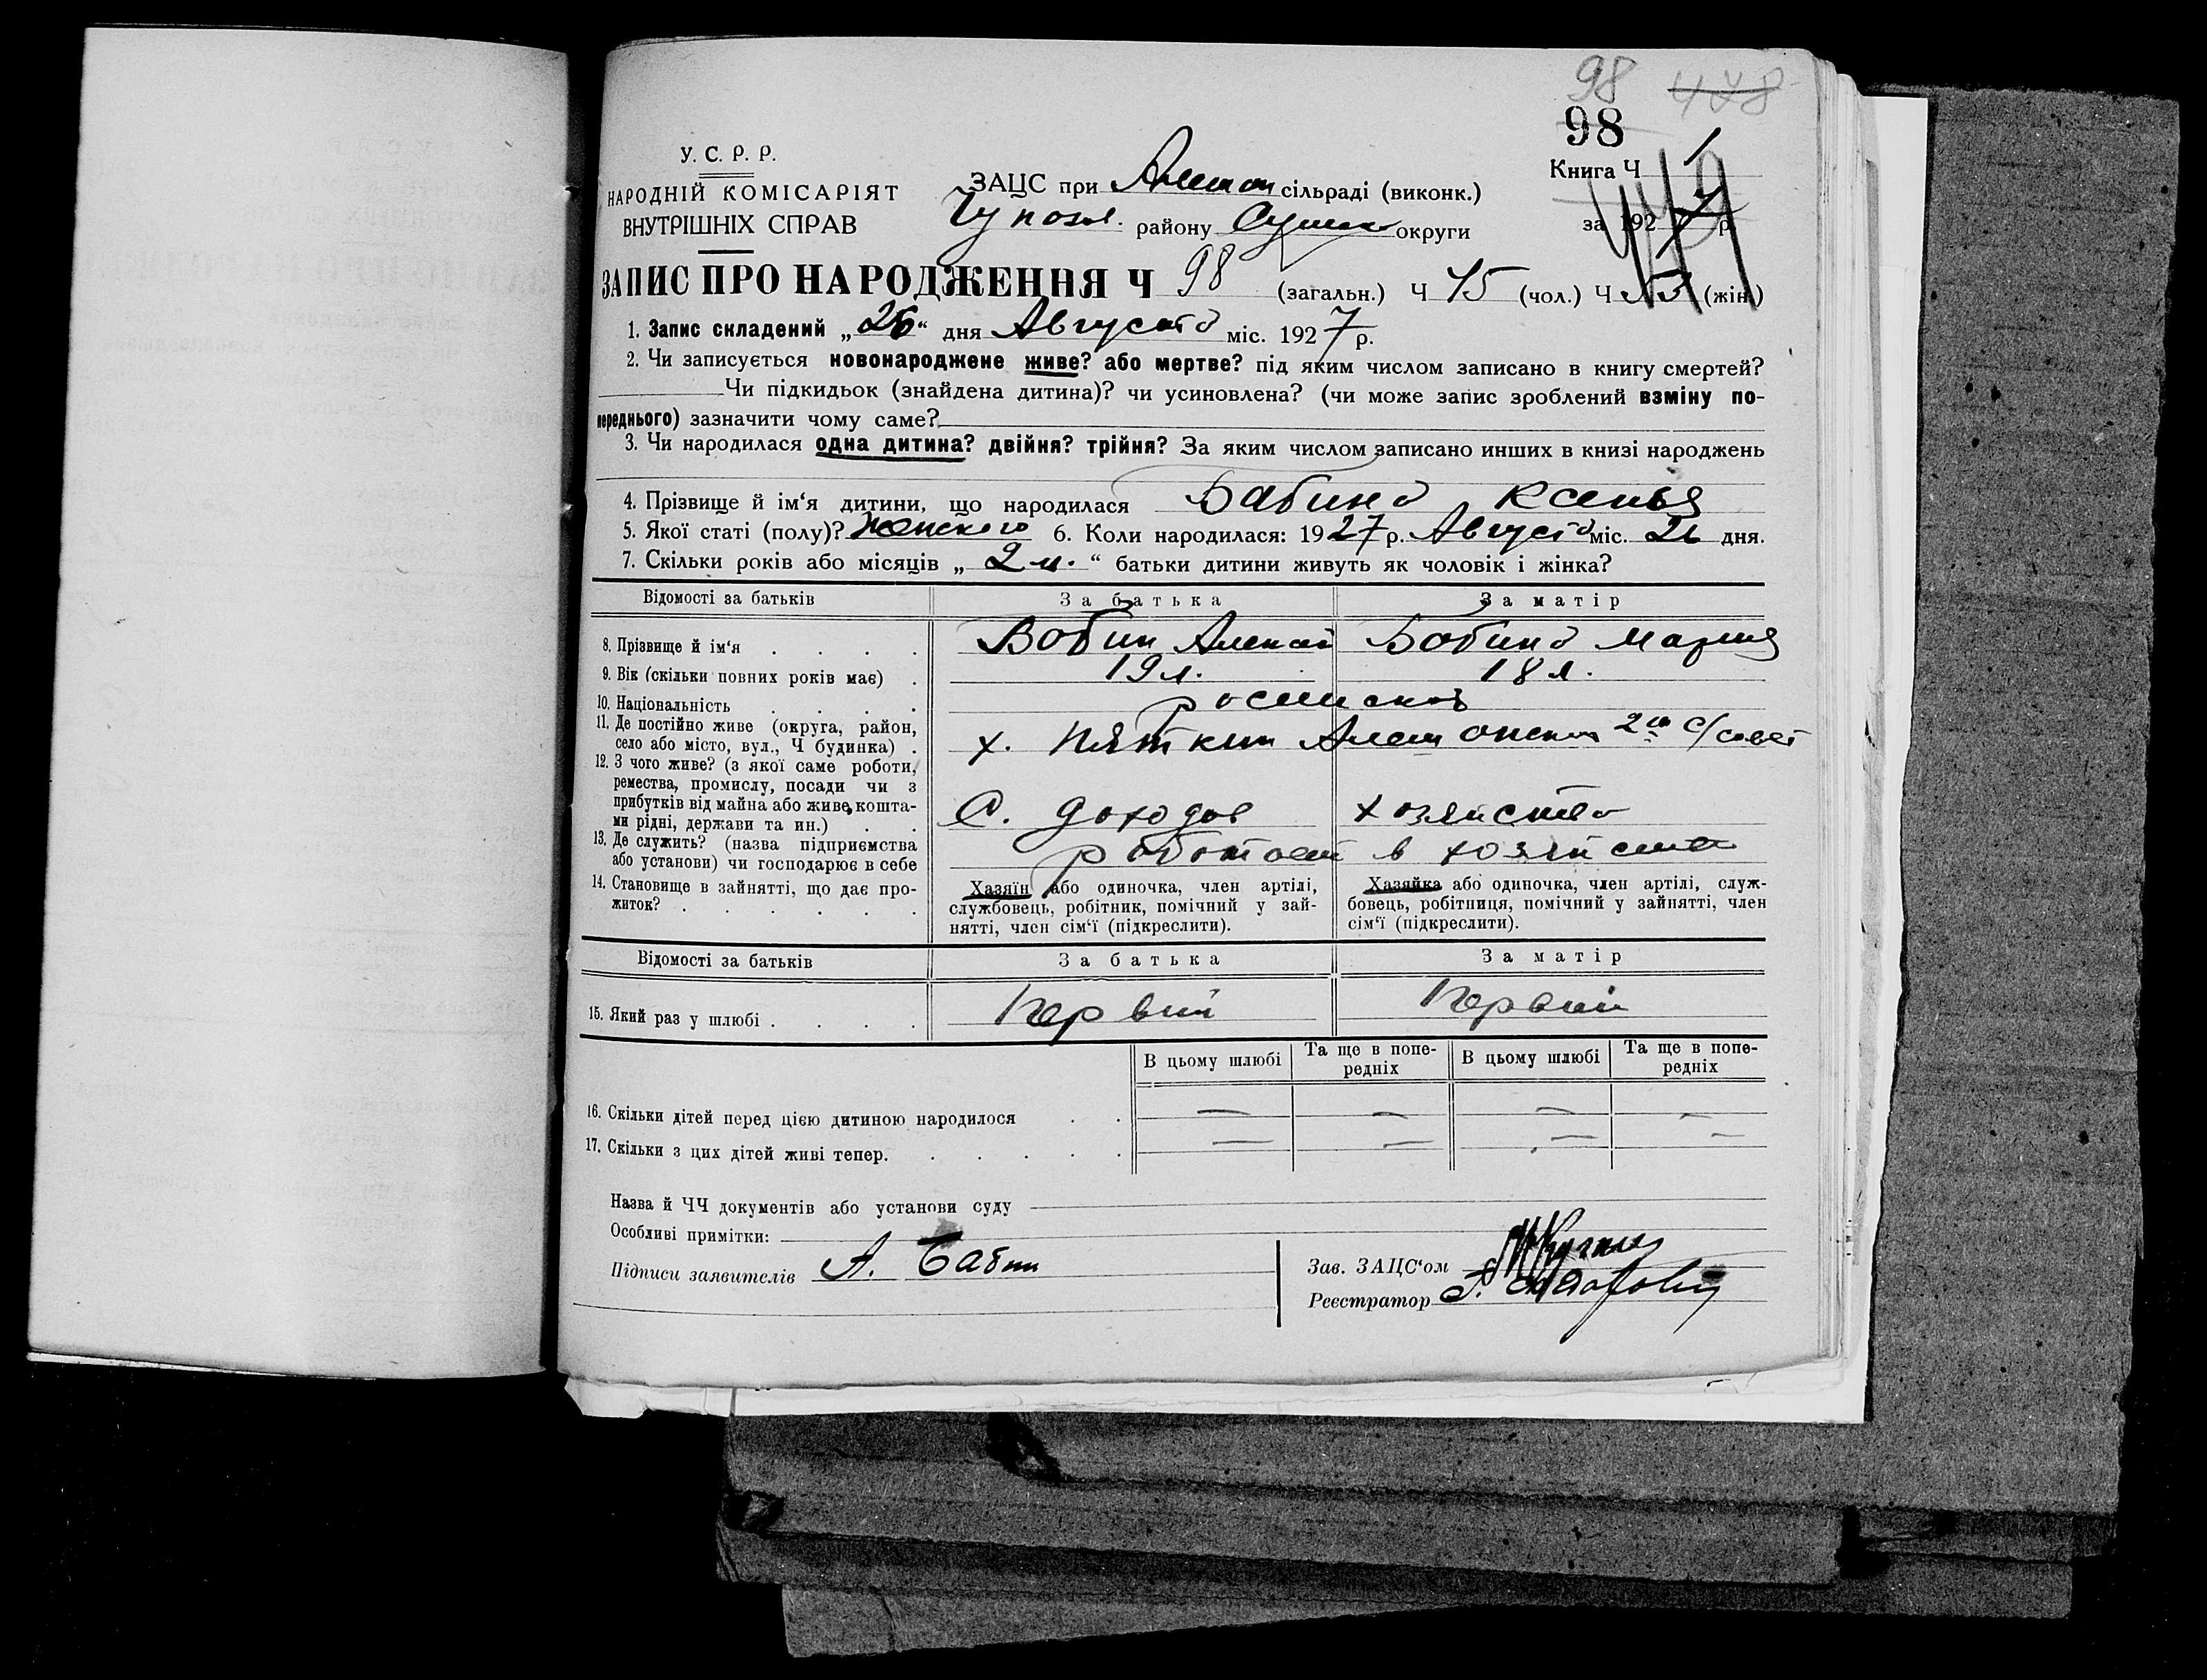 98 478
98
У. С. Р. Р.
НАРОДНІЙ КОМІСАРІЯТ
ВНУТРІШНІХ СПРАВ
ЗАЦС при Алешон сільраді (виконк.)
Чупохов. району Сумск округи
Книга Ч 1
за 1927 р.
ЗАПИС ПРО НАРОДЖЕННЯ Ч 98 (загальн.) Ч 45 (чол.) Ч 53 (жін.)
1. Запис складений „26“ дня Августа міс. 1927 р.
2. Чи записується новонароджене живе? або мертве? під яким числом записано в книгу смертей?
Чи підкидьок (знайдена дитина)? чи усиновлена? (чи може запис зроблений взміну по-
переднього) зазначити чому саме?
3. Чи народилася одна дитина? двійня? трійня? За яким числом записано инших в книзі народжень
4. Прізвище й ім‘я дитини, що народилася Бабина Ксенья
5. Якої статі (полу)? Женского 6. Коли народилася: 1927 р. Августа міс. 26 дня.
7. Скільки років або місяців „ 2 м. “ батьки дитини живуть як чоловік і жінка?
Відомості за батьків За батька За матір
8. Прізвище й ім‘я . . . . Бабин Алексей Бабина Мария
9. Вік (скільки повних років має) . 19 л. 18 л.
10. Національність . . . .
11. Де постійно живе (округа, район,
село або місто, вул., Ч будинка) . х. Пяткин Алешонск 2й с/совет
12. З чого живе? (з якої саме роботи,
ремества, промислу, посади чи з
прибутків від майна або живе, кошта-
ми рідні, держави та ин.) . . С. доходов хозяйства
13. Де служить? (назва підприємства
або установи) чи господарює в себе работает в хозяйстве
14. Становище в зайнятті, що дає про-
житок? . . . . . .
Хазяїн або одиночка, член артілі,
службовець, робітник, помічний у зай-
нятті, член сім‘ї (підкреслити).
Хазяйка або одиночка, член артілі, служ-
бовець, робітниця, помічний у зайнятті, член
сім‘ї (підкреслити).
Відомості за батьків За батька За матір
15. Який раз у шлюбі . . . . Первый Первый
В цьому шлюбі Та ще в попе-
редніх В цьому шлюбі Та ще в попе-
редніх
16. Скільки дітей перед цією дитиною народилося . . — — — —
17. Скільки з цих дітей живі тепер. . . . . . — — — —
Назва й ЧЧ документів або установи суду
Особливі примітки:
Підписи заявителів А. Бабин
Зав. ЗАЦС‘ом
Реєстратор